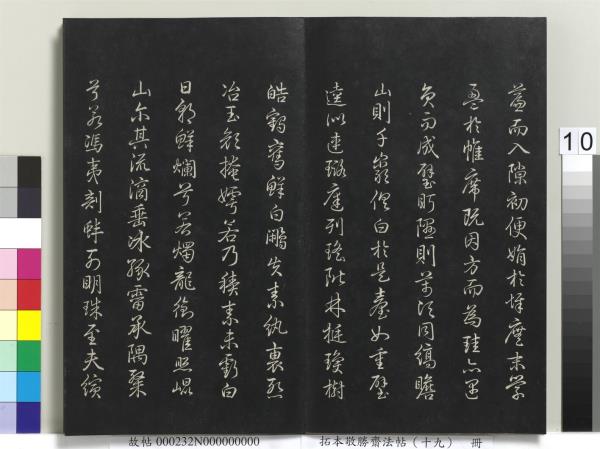 簾而入隙初便娟於墀廡末縈
盈於帷席既因方而為珪亦遇
員而成璧眄隰則萬頃同縞瞻
山則千巖俱白於是臺如重璧
逵似連璐庭列瑤階林挺瓊樹
皓鶴奪鮮白鷴失素紈袖慙
冶玉顏掩姱若乃積素未虧白
日朝鮮爛兮若燭龍銜曜照崐
山尒其流滴垂冰緣霤承隅粲
兮若馮夷剖蚌列明珠至夫繽
10
故帖 000232N000000000
拓本敬勝齋法帖（十九） 冊